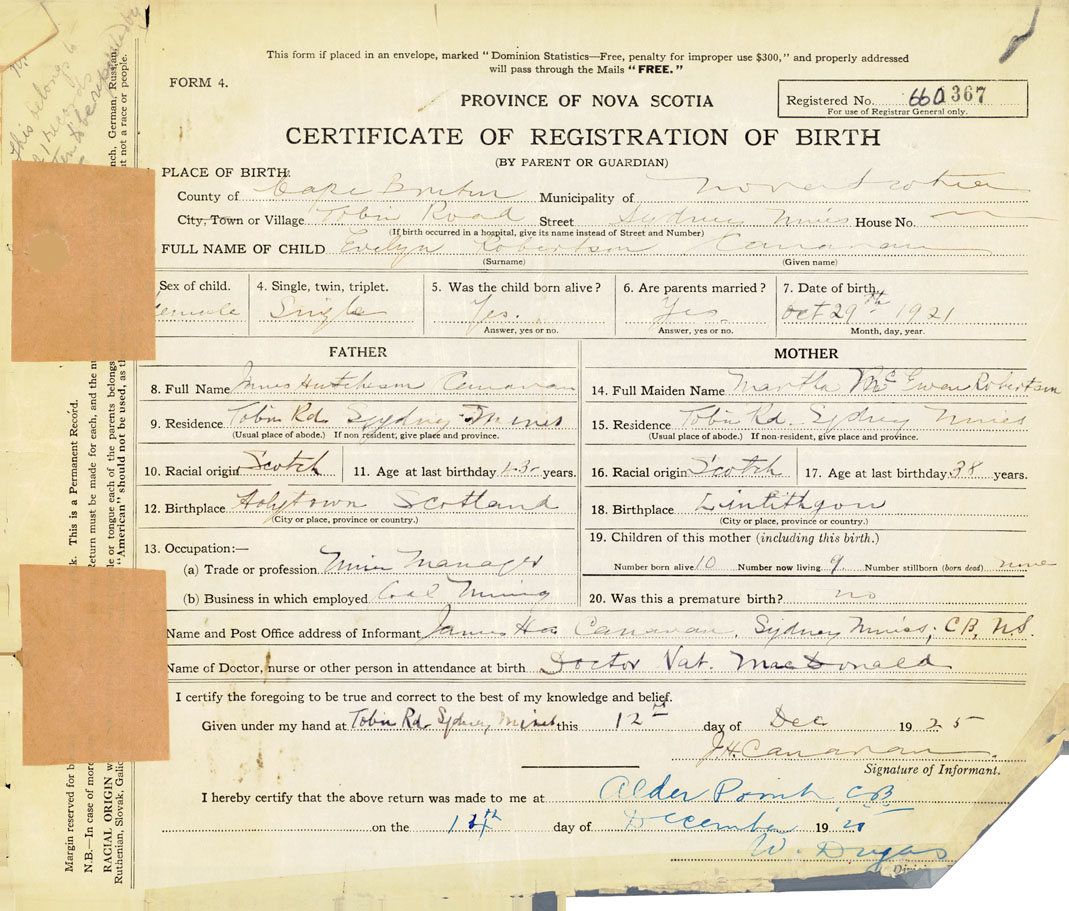 This form if placed in an envelope, marked "Dominion Statistics—Free, penalty for improper use $300," and properly addressed
will pass through the Mails "FREE."
FORM 4.
PROVINCE OF NOVA SCOTIA
Registered No. 660 367
For use of Registrar General only.
CERTIFICATE OF REGISTRATION OF BIRTH
(BY PARENT OR GUARDIAN)
PLACE OF BIRTH:
County of Cape Breton Municipality of Nova Scotia
City, Town or Village Tobin Road Street Sydney Mines House No.
(If birth occurred in a hospital, give its name instead of Street and Number)
FULL NAME OF CHILD Evelyn Robertson Canavan
(Surname) (Given name)
Sex of child. 4. Single, twin, triplet. 5. Was the child born alive? 6. Are parents married? 7. Date of birth.
Female Single Yes. Yes Oct 29th 1921
Answer, yes or no. Answer, yes or no. Month, day, year.
FATHER MOTHER
8. Full Name James Hutcheson Canavan 14. Full Maiden Name Martha McEwan Robertson
9. Residence Tobin Rd. Sydney Mines 15. Residence Tobin Rd. Sydney Mines
(Usual place of abode.) If non resident, give place and province. (Usual place of abode.) If non-resident, give place and province.
10. Racial origin Scotch 11. Age at last birthday years. 16. Racial origin Scotch 17. Age at last birthday 38 years.
12. Birthplace Holytown Scotland 18. Birthplace Linlithgow
(City or place, province or country.) (City or place, province or country.)
13. Occupation:— 19. Children of this mother (including this birth.)
(a) Trade or profession Mine Manager Number born alive 10 Number now living 9 Number stillborn (born dead) none
(b) Business in which employed Coal Mining 20. Was this a premature birth? no
Name and Post Office address of Informant James Canavan, Sydney Mines, C.B, N.S.
Name of Doctor, nurse or other person in attendance at birth Doctor Nat. MacDonald
I certify the foregoing to be true and correct to the best of my knowledge and belief.
Given under my hand at Tobin Rd. Sydney Mines this 12 day of Dec 1925
J.H. Canavan
Signature of Informant.
I hereby certify that the above return was made to me at Alder Point C B
on the day of December 19
W. Dugas
Margin reserved for b
k. This is a Permanent Record.
N.B.—In case of more
Return must be made for each, and the nu
RACIAL ORIGIN w
le or tongue each of the parents belongs
Ruthenian, Slovak, Galic
"American" should not be used, as th
nch, German, Russian,
ut not a race or people.
This belongs to